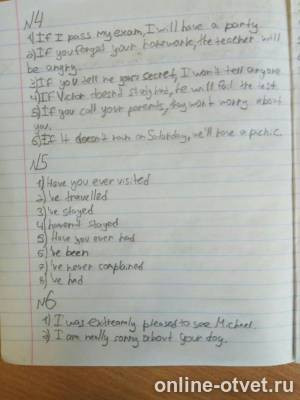 №4
1) If I pass my exam, I will have a party.
2) If you forget your homework, the teacher will
be angry.
3) If you tell me your secret, I won't tell anyone
4) If Victor doesn't study hard, he will fail the test.
5) If you call your parents, they won't worry about
you.
6) If it doesn't rain on Saturday, we'll have a picnic.
№5
1) Have you ever visited
2) 've travelled
3) 've stayed
4) haven't stayed
5) Have you ever had
6) 've been
7) 've never complained
8) 've had
№6
1) I was extreamly pleased to see Michael.
2) I am really sorry about your dog.
online-otvet.ru